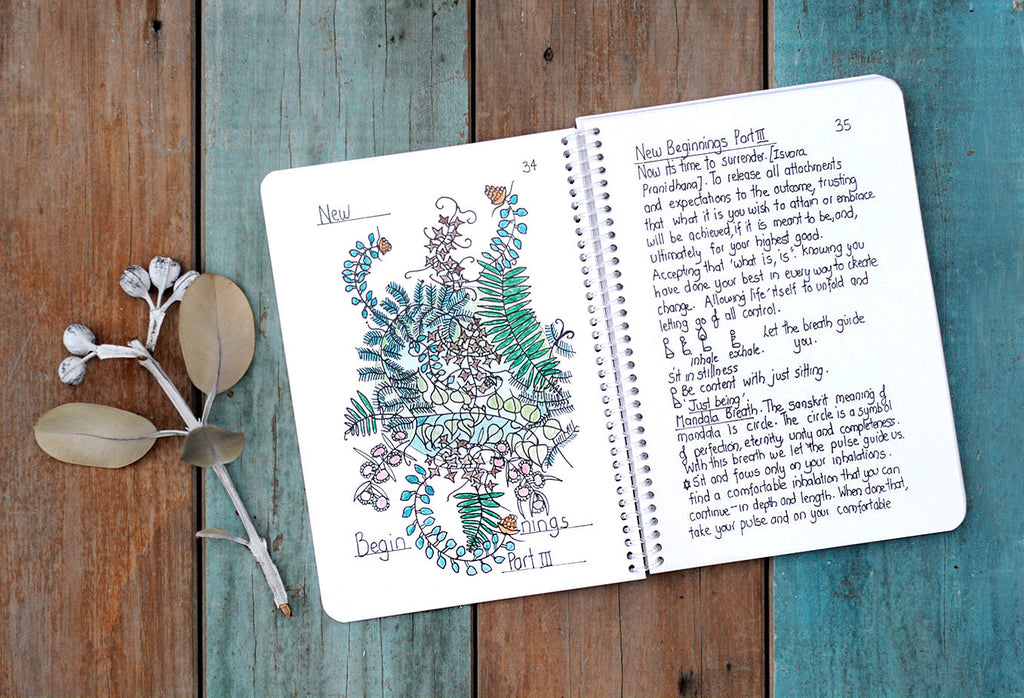 34
New
Beginnings
Part III
35
New Beginnings Part III
Now it's time to surrender. [Isvara
Pranidhana]. To release all attachments
and expectations to the outcome, trusting
that what it is you wish to attain or embrace
will be achieved, if it is meant to be, and,
ultimately for your highest good.
Accepting that 'what is, is'. knowing you
have done your best in every way to create
change. Allowing life itself to unfold and
letting go of all control.
Let the breath guide
you.
inhale exhale.
Sit in stillness
Be content with just sitting.
'Just being'
Mandala Breath. The sanskrit meaning of
mandala is circle. The circle is a symbol
of perfection, eternity, unity and completeness.
With this breath we let the pulse guide us.
Sit and focus only on your inhalations.
find a comfortable inhalation that you can
continue - in depth and length. When done that,
take your pulse and on your comfortable